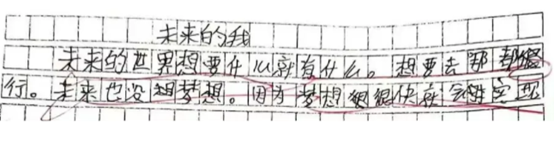 未来的我
未来的世界想要什么就有什么。想要去那都
行。未来也没想梦想。因为梦想很快就会实现